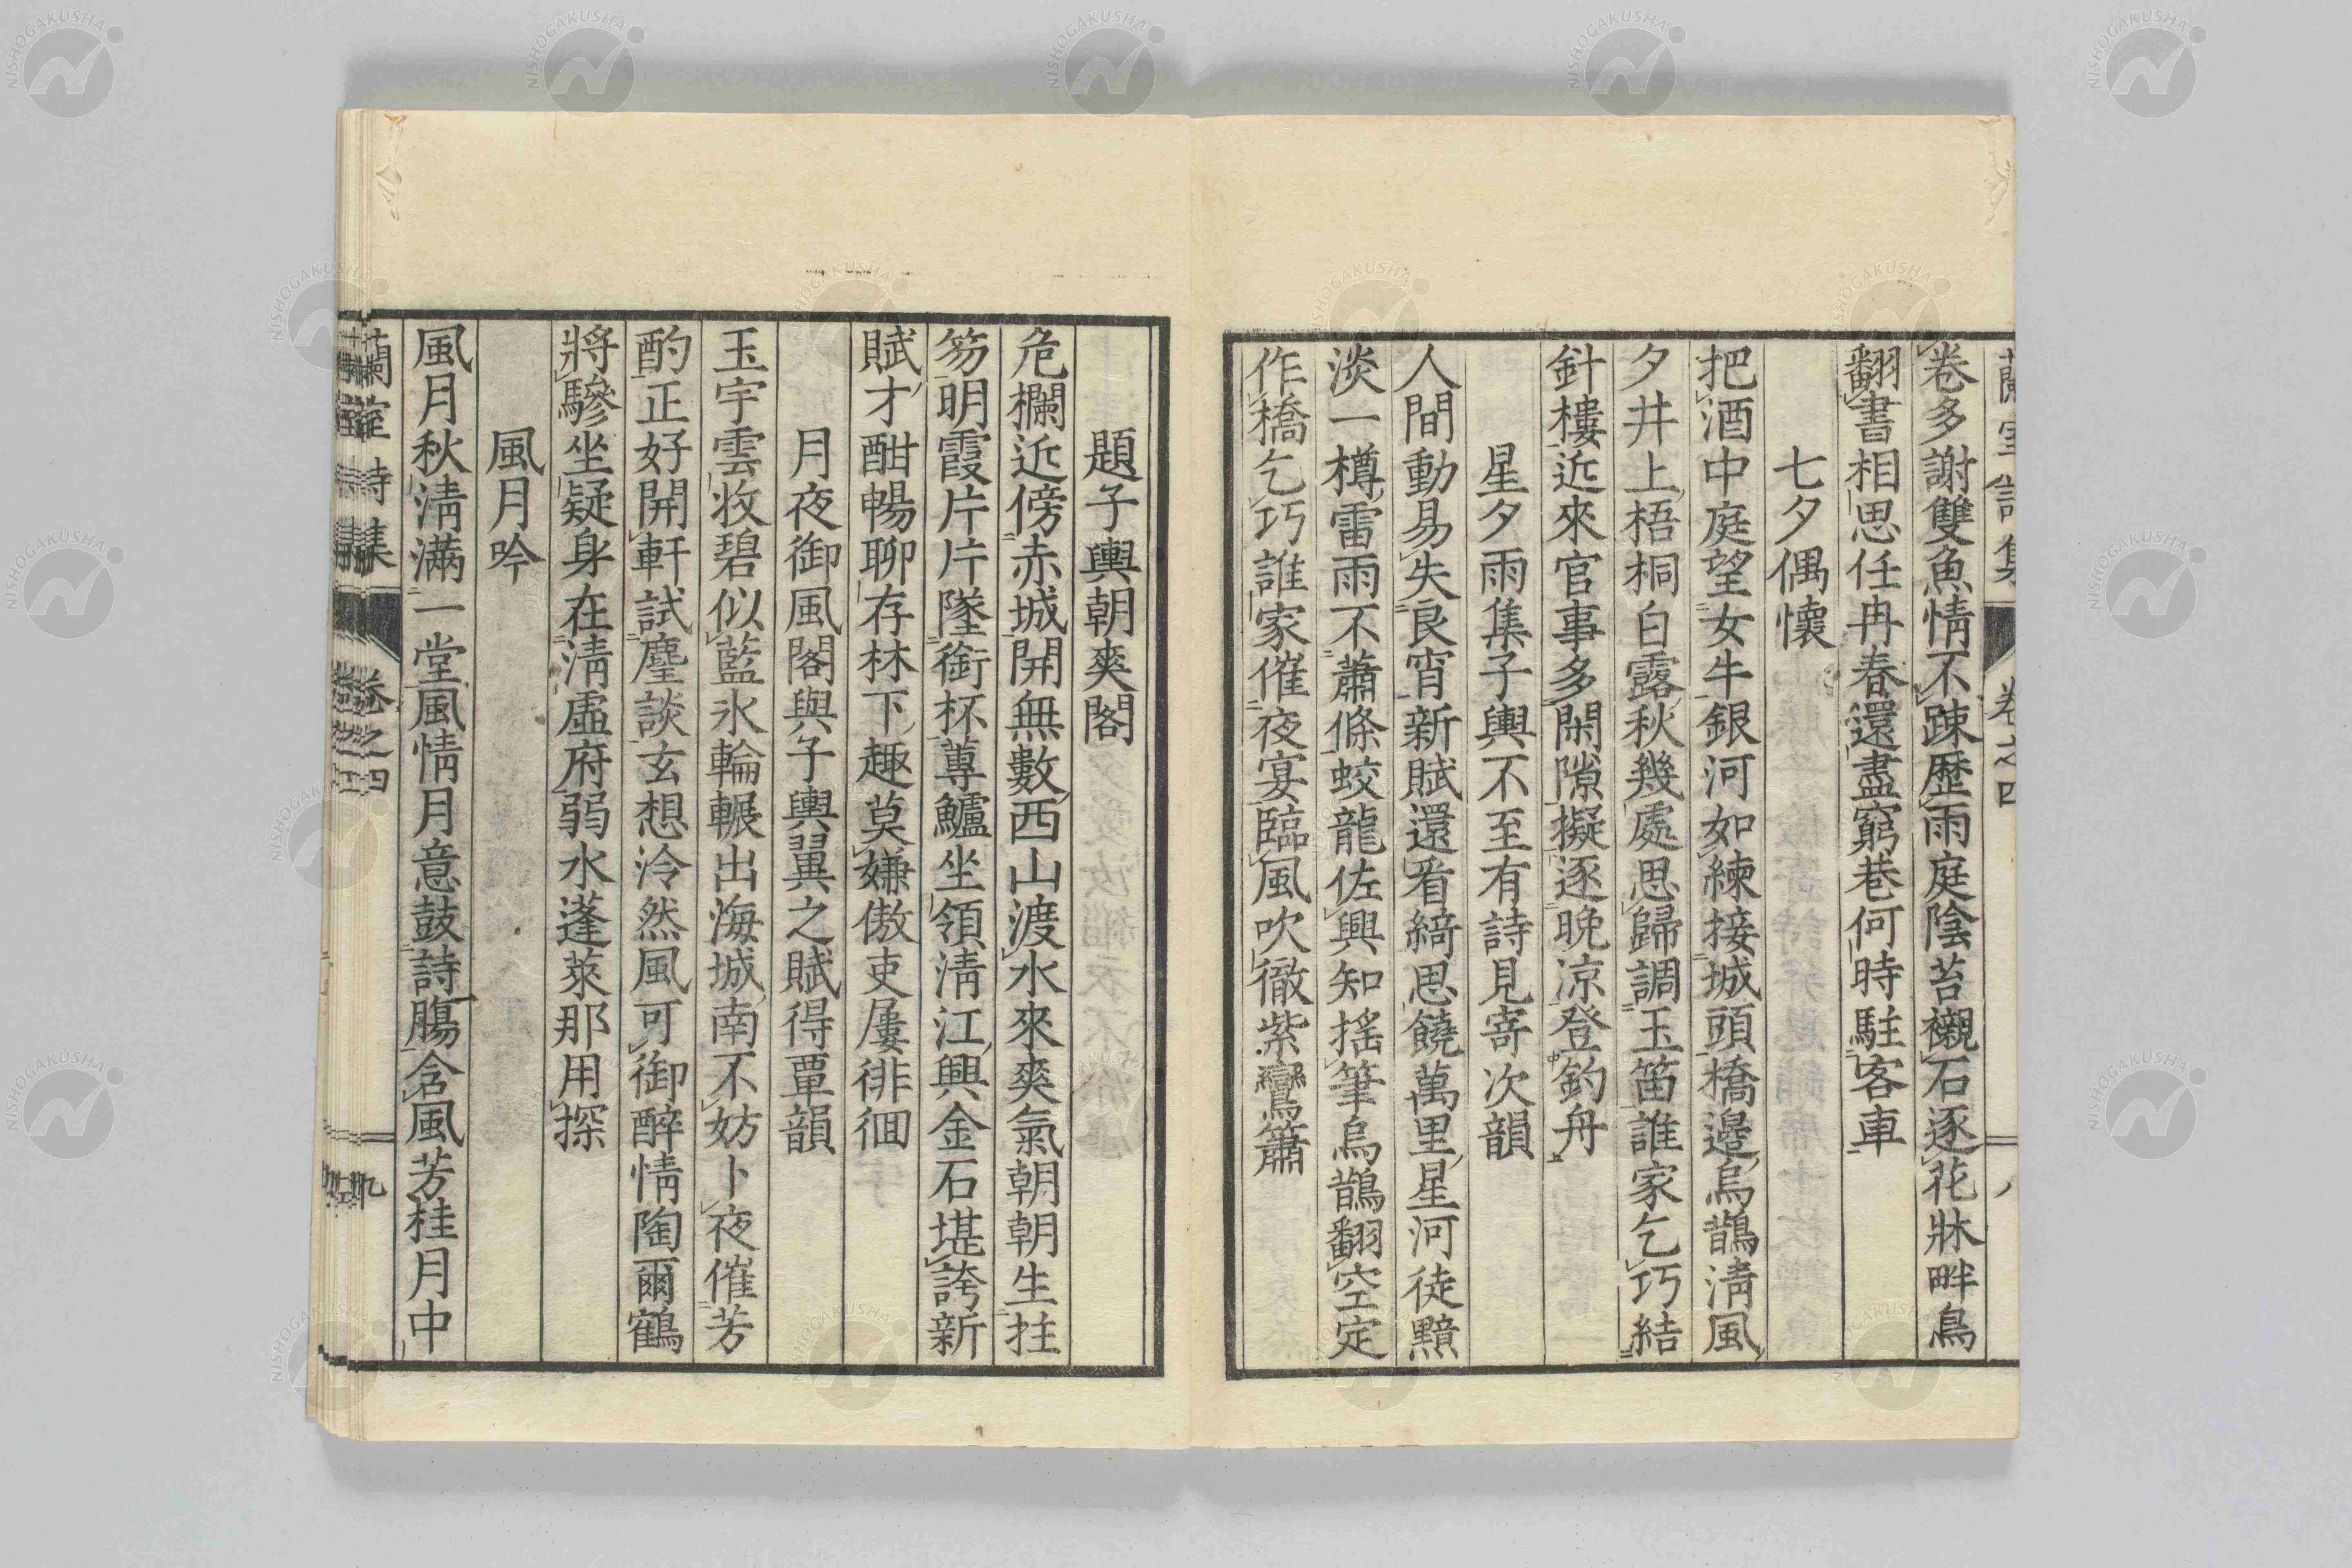 蘭室詩集 卷之四 八
卷多謝雙魚情不踈歷雨庭陰苔襯石逐花牀畔鳥
翻書相思任冉春還盡窮巷何時駐客車
七夕偶懷
把酒中庭望女牛銀河如練接城頭橋邊烏鵲淸風
夕井上梧桐白露秋幾處思歸調玉笛誰家乞巧結
針樓近來官事多閑隙擬逐晚凉登釣舟
星夕雨集子輿不至有詩見寄次韻
人間動易失良宵新賦還看綺思饒萬里星河徒黯
淡一樽雷雨不蕭條蛟龍佐興知搖筆烏鵲翻空定
作橋乞巧誰家催夜宴臨風吹徹紫鸞簫
題子輿朝爽閣
危欄近傍赤城開無數西山渡水來爽氣朝朝生拄
笏明霞片片墜銜杯蓴鱸坐領淸江興金石堪誇新
賦才酣暢聊存林下趣莫嫌傲吏屢徘徊
月夜御風閣與子輿翼之賦得覃韻
玉宇雲收碧似藍氷輪輾出海城南不妨卜夜催芳
酌正好開軒試麈談玄想泠然風可御醉情陶爾鶴
將驂坐疑身在淸虛府弱水蓬萊那用探
風月吟
風月秋淸滿一堂風情月意鼓詩膓含風芳桂月中
蘭室詩集 卷之四 九
NISHOGAKUSHA